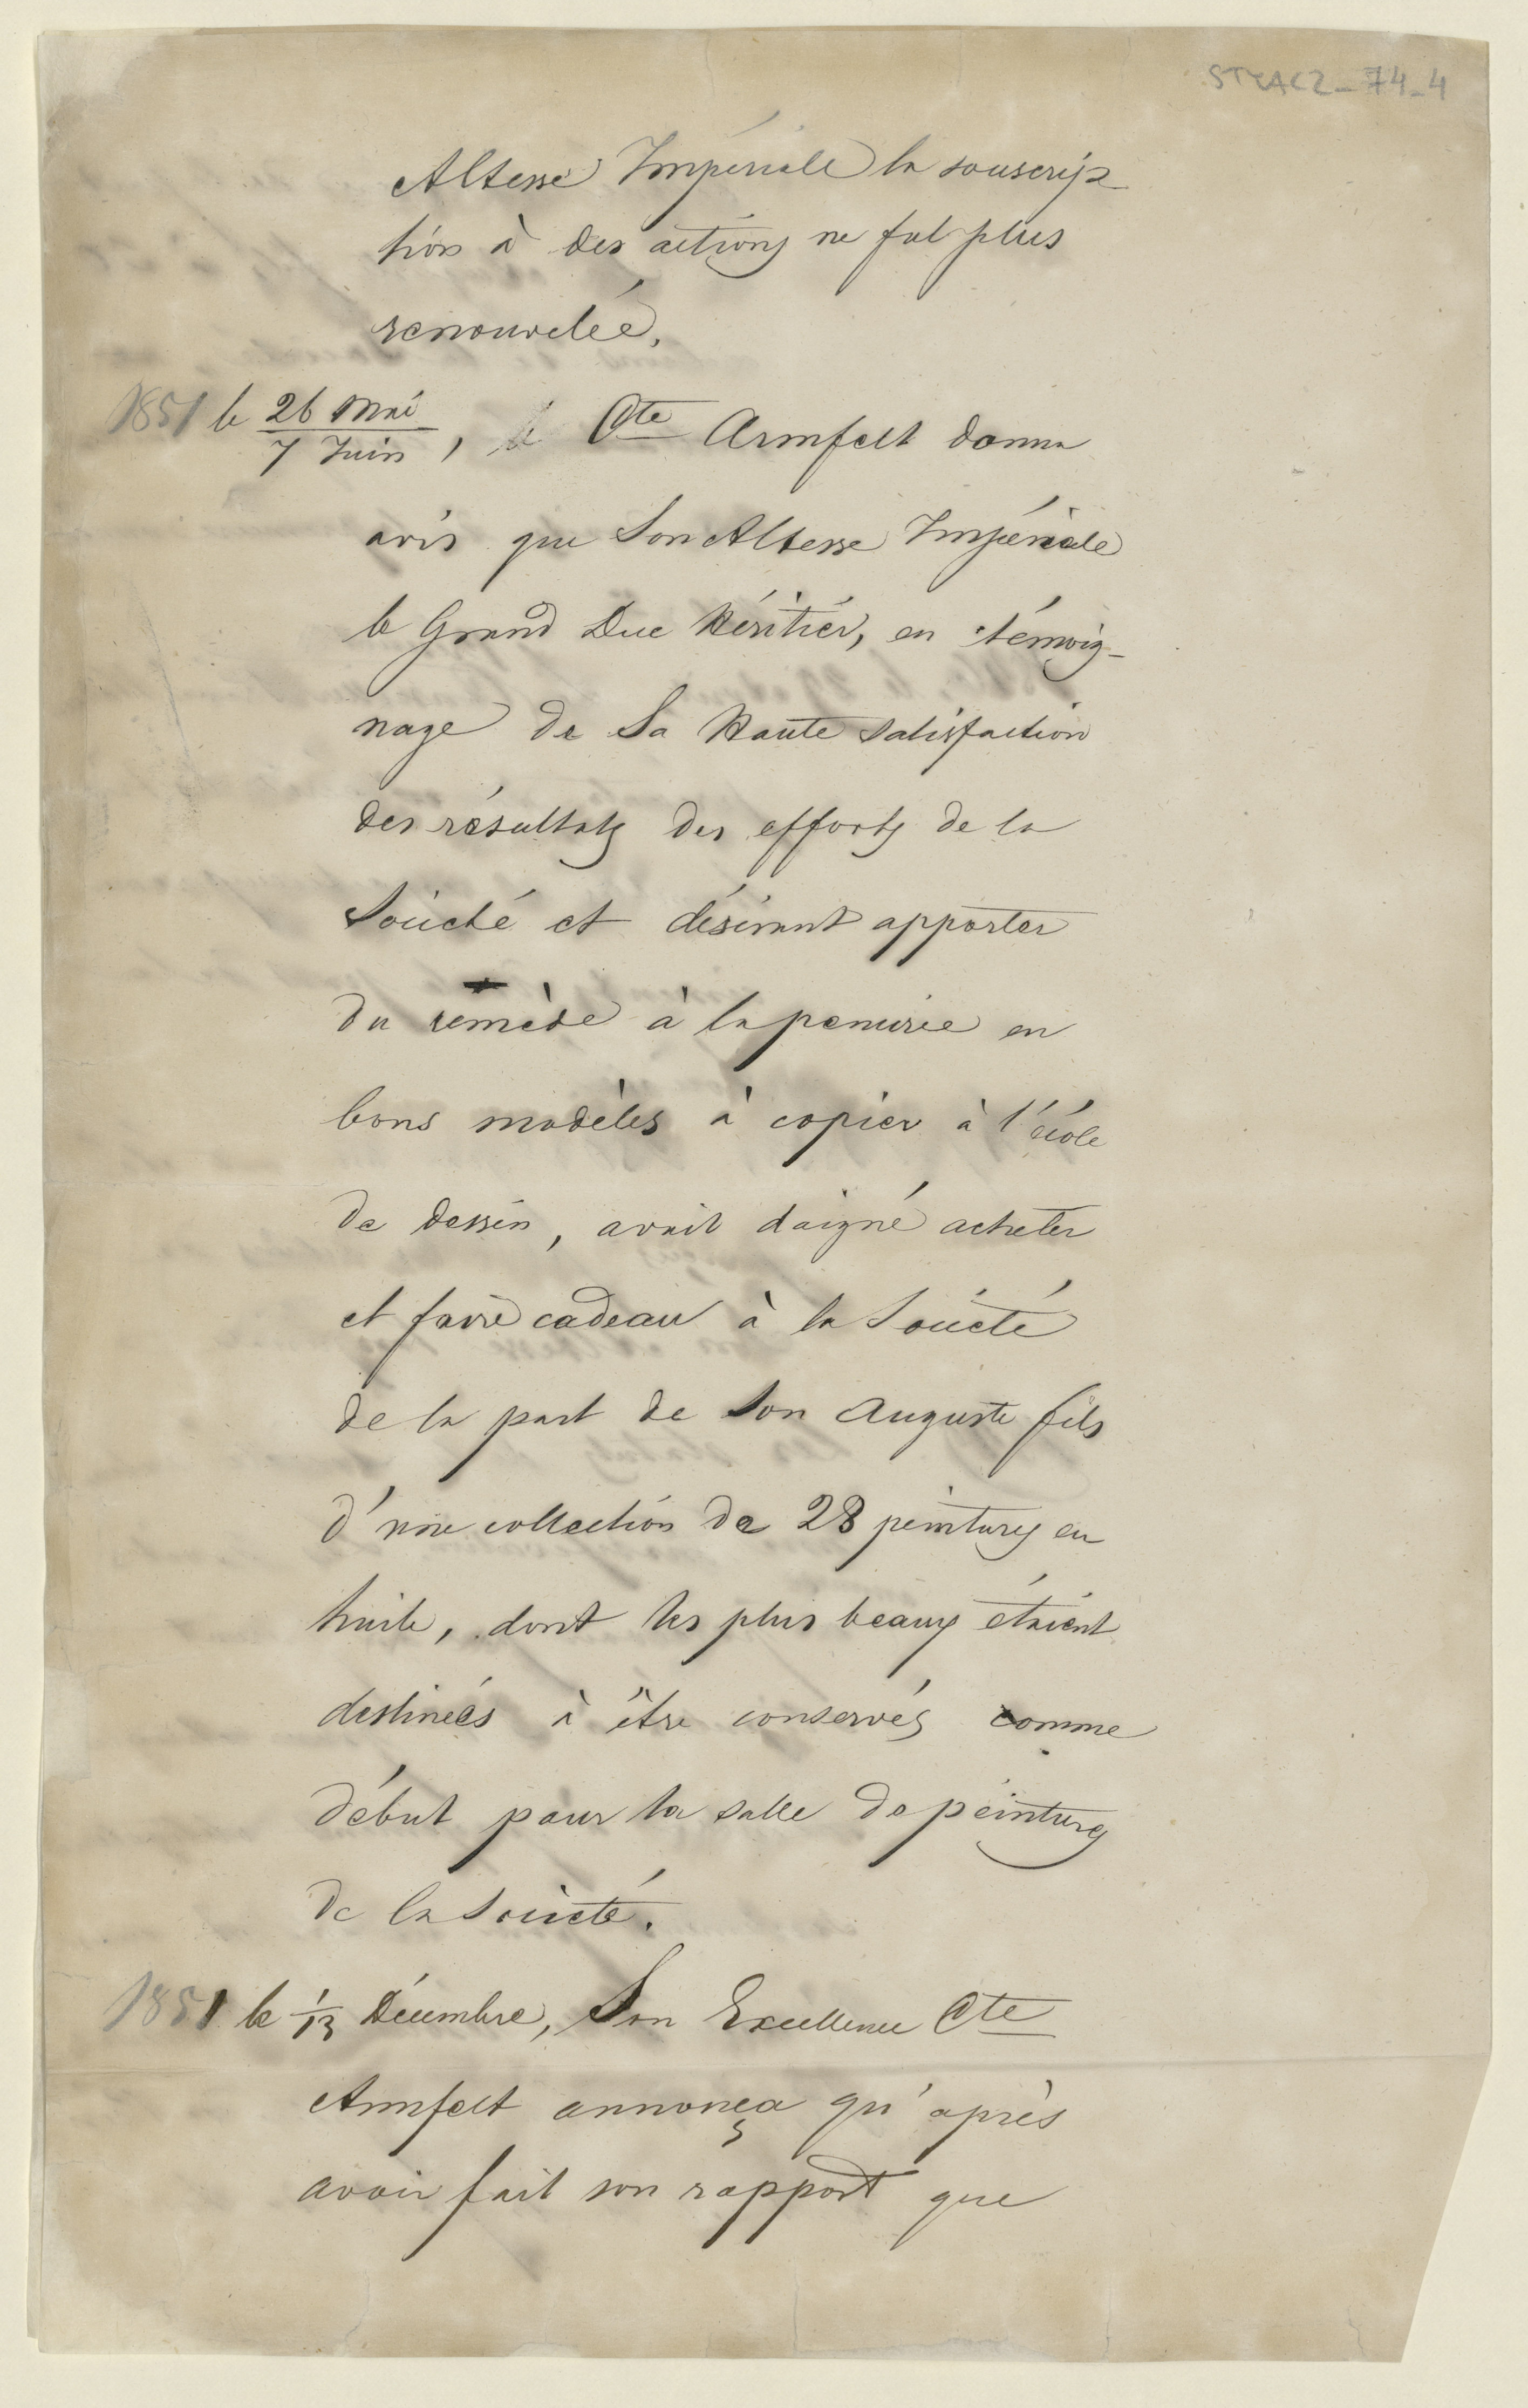 STYAC2_74_4
Altesse Impériale la souscrip-
tion à des actions ne fut plus
renouvelée.
1851 le 26 Mai
7 Juin, le Cte Armfelt donna
avis que Son Altesse Impériale
le Grand Duc Héritier, en témoig-
nage de Sa Haute satisfaction
des résultats des efforts de la
Société et désirant apporter
du remède à la penurie en
bons modèles à copier à l'école
de dessin, avait daigné acheter
et faire cadeau à la Société
de la part de Son Auguste fils
d'une collection de 28 peintures en
huile, dont les plus beaux étaient
destinées à être conservés comme
début pour la salle de peintures
de la Société.
1851 le 1/13 Décembre, Son Excellence Cte
Armfelt annonça qu'après
avoir fait son rapport que